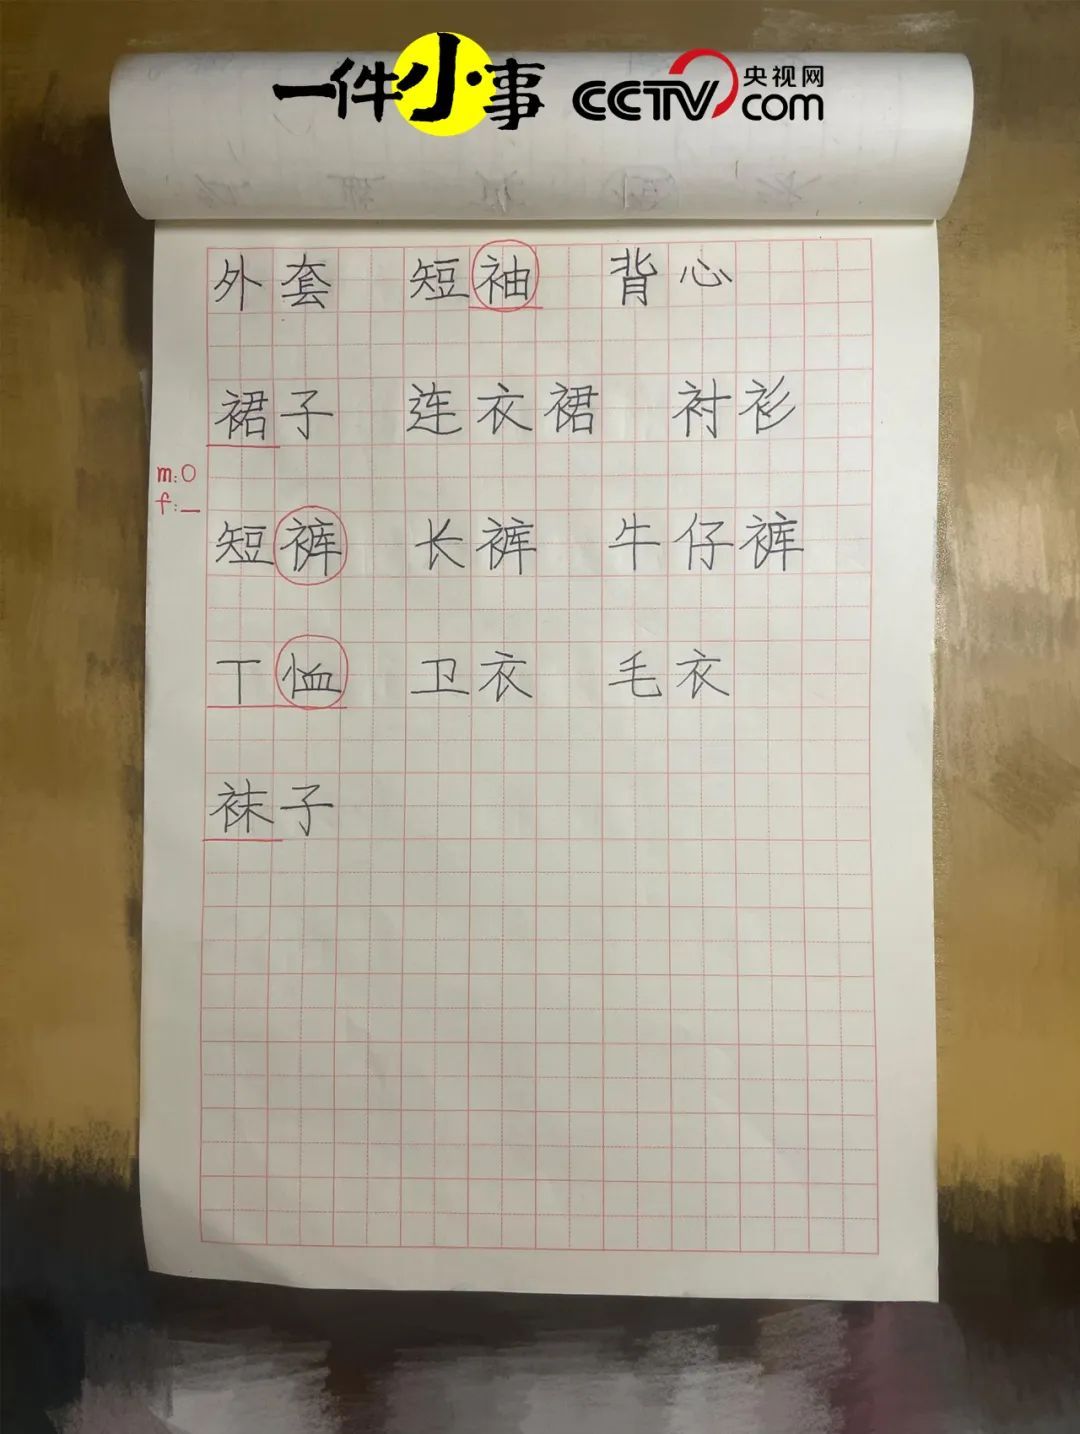 一件小·事 CCTV 央视网 com
外套 短袖 背心
裙子 连衣裙 衬衫
m:O
f:_
短裤 长裤 牛仔裤
T恤 卫衣 毛衣
袜子